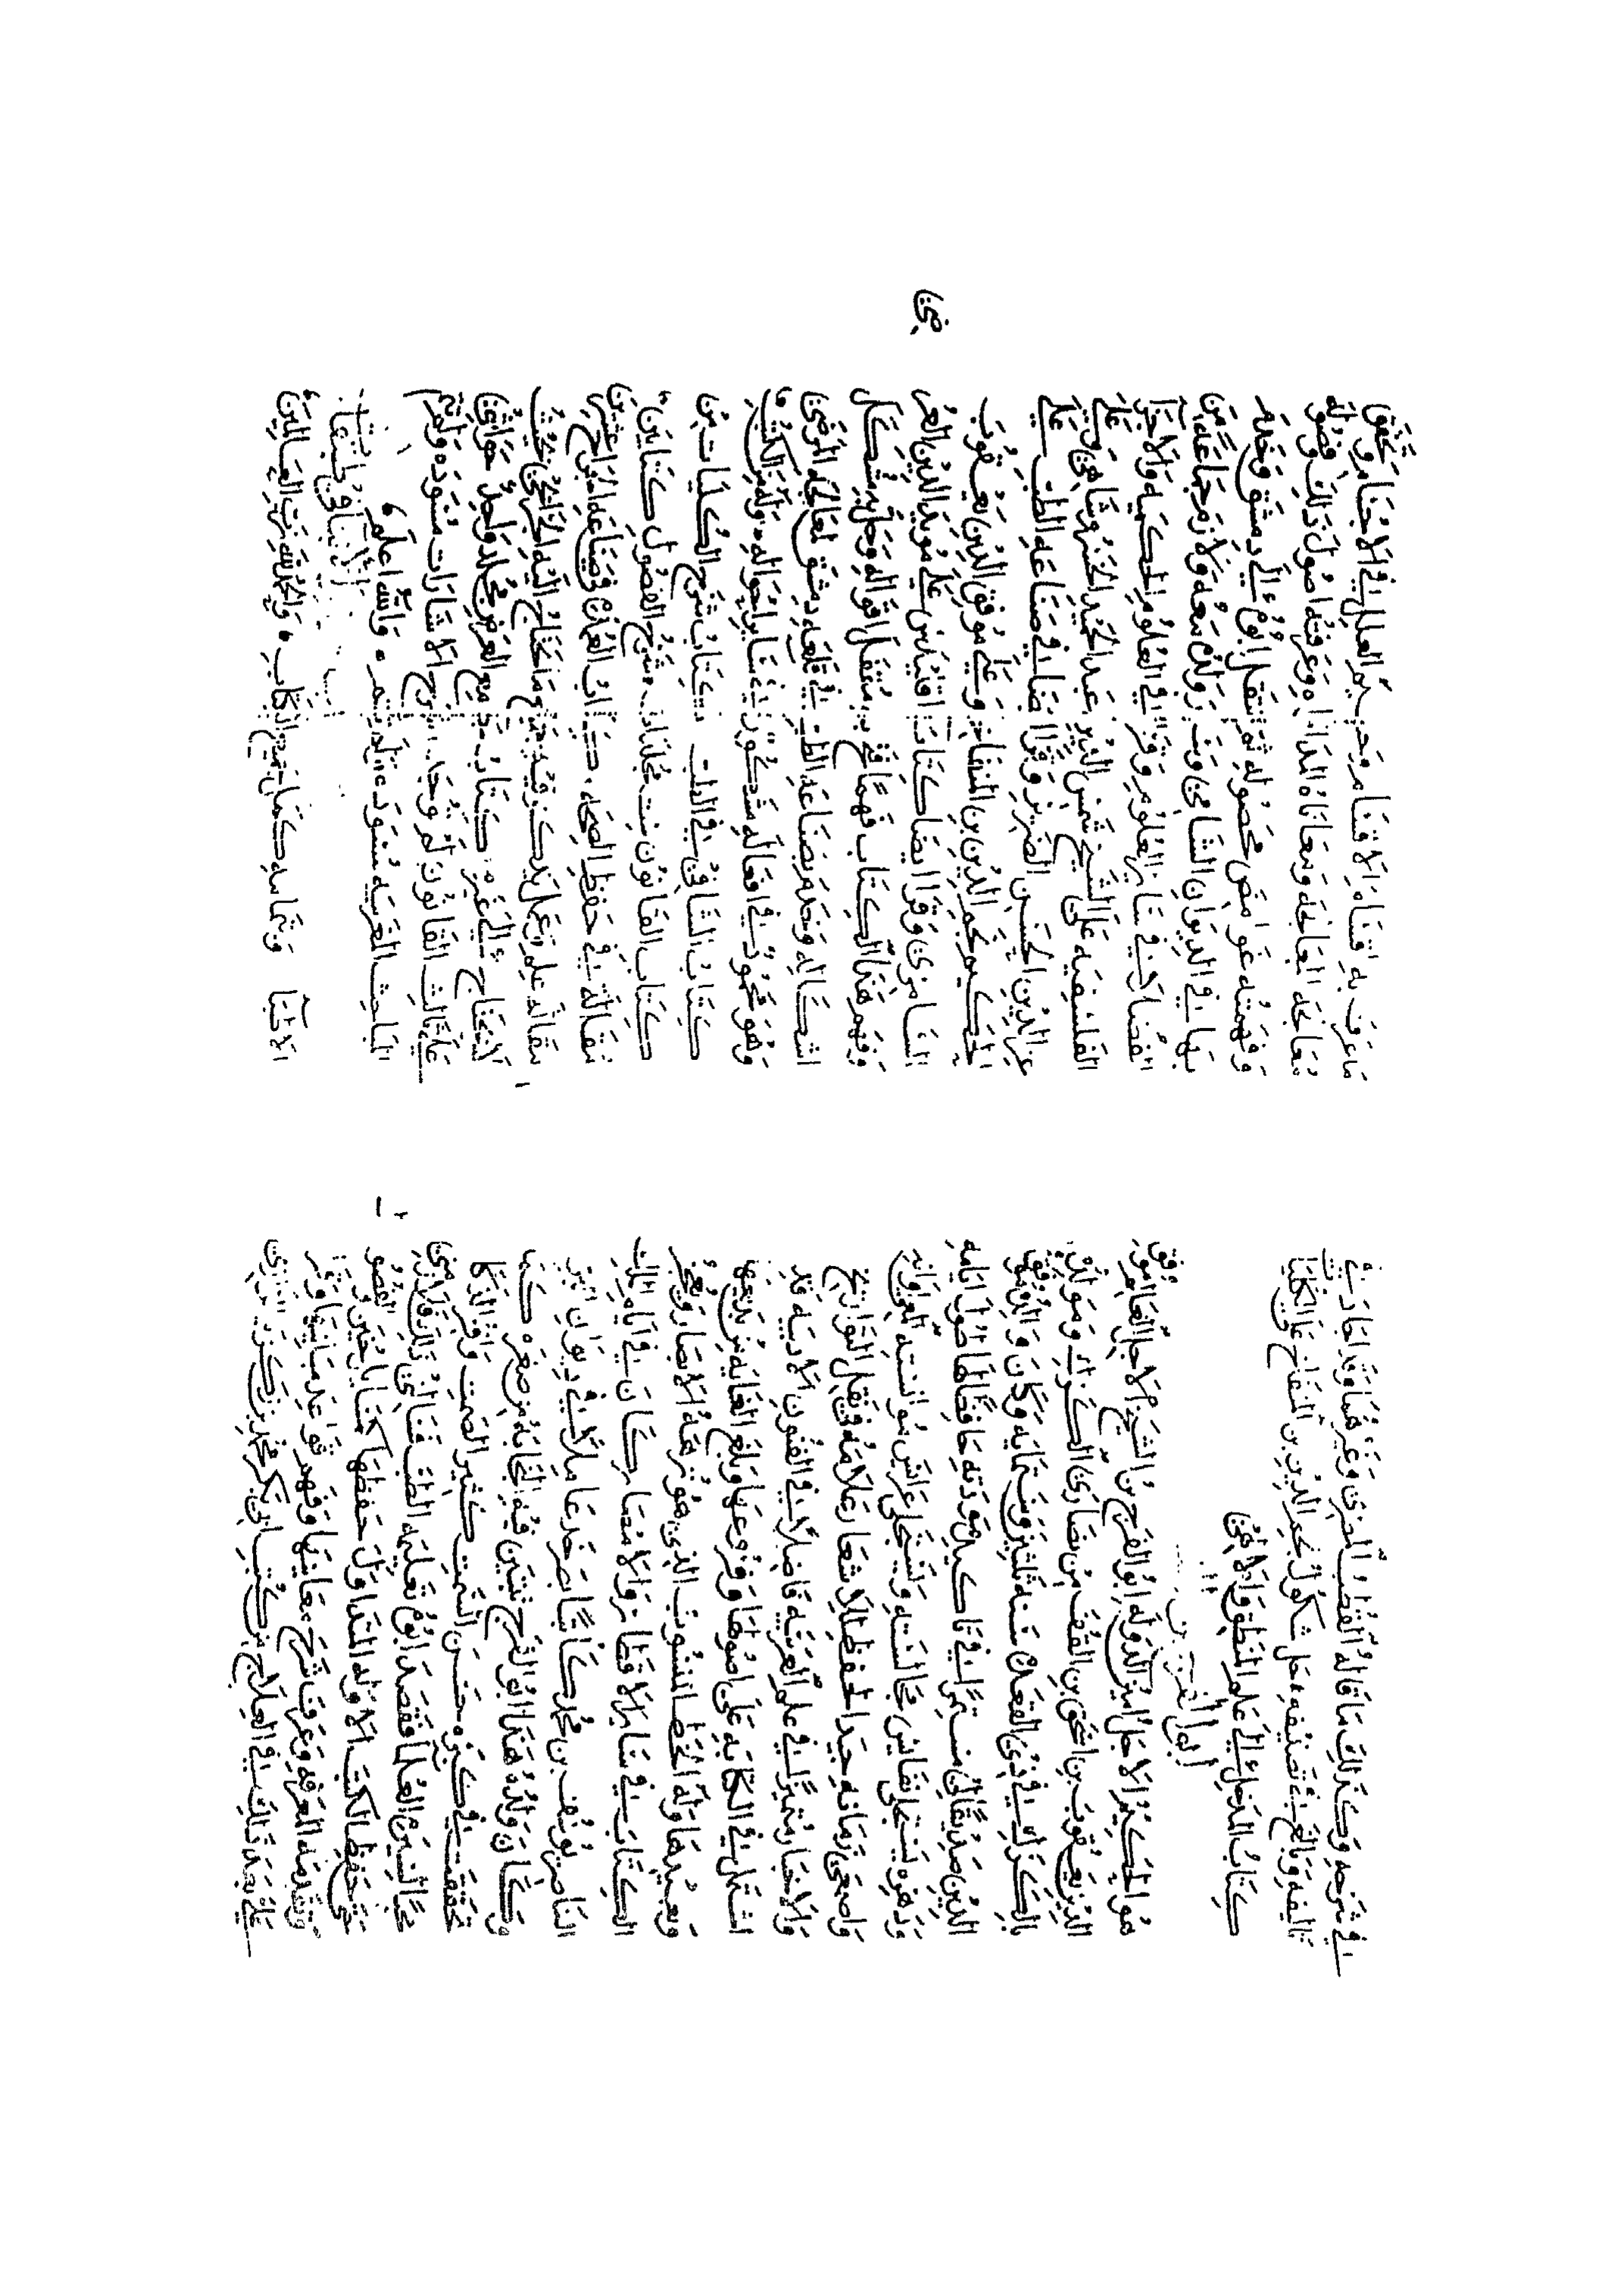 في شرحه وكذلك ما قاله القطب المصري وغيرهما وقد اجاد في
تاليفه وبالغ في تصنيفه حل شكوك نجم الدين بن المنفاخ على الكليات
كتاب المدخل الى علم المنطق والالهي
ابو الفرج بن
هو الحكيم الاجل امين الدوله ابو الفرج بن الشيخ الاجل العالم موفق
الدين يعقوب بن اسحق بن القف من نصارى الكرك ومولده
بالكرك في ذي القعدة سنة ثلثين وستمايه وكان والده موفق
الدين صديقا لي مستمرا في تاكيد مودته حافظا لها طول ايامه
ودهره تستحلى نفايس مجالسته وتستجلى عرايس موانسته المعي اوانه
واصمعي زمانه جيد الحفظ للاشعار علامه في نقل التواريخ
والاخبار متميزا في علم العربيه فاضلا في الفنون الادبيه قد
اشتمل في الكتابه على اصولها وفروعها وبلغ الغايه من بديعها
وبعيدها وله الخط المنسوب الذي هو نزهة الابصار ويعجز
الكتاب في ساير الاقطار والامصار كان في ايام الملك
الناصر يوسف بن محمد كاتبا بصرخد عاملا في ديوان البر
وكان ولده هذا ابو الفرج تتبين فيه النجابه من صغره كما
تحققت في كبره حسن السمت كثير الصمت وافر الذكا
محبا لسيرة العلما فقصد ابوه تعليمه الطب فسالني ذلك فلازمني
حتى حفظ الكتب الاوله المتداول حفظها كمسايل حنين والفصول
وتقدمه المعرفه وعرف شرح معانيها وفهم قواعد مبانيها وقرا
علي بعد ذلك في العلاج من كتب ابي بكر محمد بن زكريا الرازي
ما عرف به اقسام الاسقام وجسيم العلل في الاجسام وتحقق
معالجة المعالجه ومعاناة المداواه وعرفته اصول ذلك وفصوله
وفهمته غوامضه ومحصوله ثم انتقل ابوه الى دمشق وخدم
بها في الديوان السامي وسار ولده معه ولازم جماعه من
الفضلا فقرا في ساير العلوم وقرا في العلوم الحكميه والاجزا
الفلسفيه على الشيخ شمس الدين عبد الحميد الخسروشاهي وعلى
عز الدين الحسن الضرير وقرا ايضا في صناعة الطب على
الحكيم نجم الدين بن المنفاخ وعلى موفق الدين يعقوب
السامري وقرا ايضا كتاب اقليدس على مويد الدين العرضي
وفهم هذا الكتاب فهما فتح به مقفل اقواله وحل به مشكل
اشكاله وخدم بصناعة الطب في قلعة دمشق لمعالجه المرضى
وهو محمود في افعاله مشكور في ساير احواله وله من الكتب
كتاب الشافي في الطب كتاب شرح الكليات من
كتاب القانون ست مجلدات شرح الفصول كتابين
مقاله في حفظ الصحه كتاب العمده في صناعة الجراح عشرين
مقاله علم وعمل يذكر فيه جميع ما يحتاج اليه الجرايحي بحيث
لا يحتاج الى غيره كتاب جامع الغرض مجلد واحد حواشي
على ثالث القانون لم يوجد شرح الاشارات مسوده ولم يتم
المباحث المغربيه مسوده ولم يتم والله اعلم
الانبا في طبقات
الاطبا وتمامه كمل جميع الكتاب والحمد لله رب العالمين